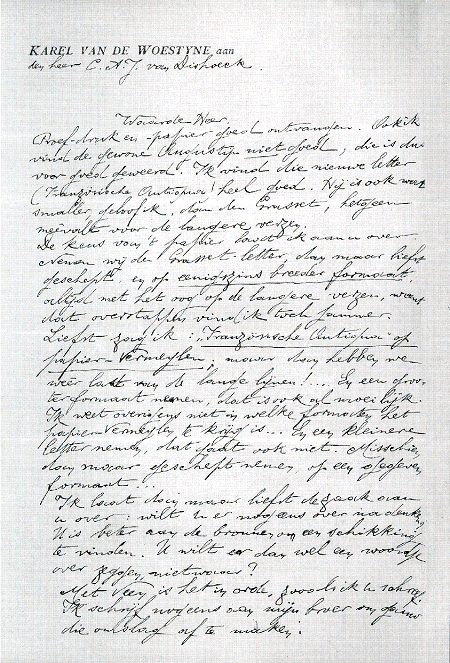 KAREL VAN DE WOESTYNE, aan
den heer C. A. J. van Dishoeck.
Waarde Heer,
Proef-druk en -papier goed ontvangen. Ook ik
vind de gewone Augustijn niet goed; die is dus
voor goed geweerd. Ik vind die nieuwe letter
(Französische Antiqua) heel goed. Hij is ook wat
smaller, geloof ik, dan den Grasset, hetgeen
meêvalt voor de langere verzen.
De keus van 't papier laat ik aan u over.
Nemen wij den Grasset-letter, dan maar liefst
geschept, en op eenigszins breeder formaat,
altijd met het oog op de langere verzen, want
dat overstappen vind ik toch jammer.
Liefst zag ik: "Französische Antiqua" op
papier-Vermeylen; maar dan hebben we
weêr last van de lange lijnen!... En een groo-
ter formaat nemen, dat is ook al moeilijk.
Ik weet overigens niet in welke formaten het
papier-Vermeylen te krijgen is... En een kleinere
letter nemen, dat gaat ook niet. Misschien
dan maar geschept nemen, op een gegeven
formaat...
Ik laat dan maar liefst de zaak aan
u over: wilt u er nog eens over nadenken?
U is beter aan de bronnen om een schikking
te vinden. U wilt er dan wel een woordje
over zeggen, nietwaar?
Met Veen is het in orde, zooals ik u schreef.
Ik schrijf nog eens aan mijn broer om
die omslag af te maken.